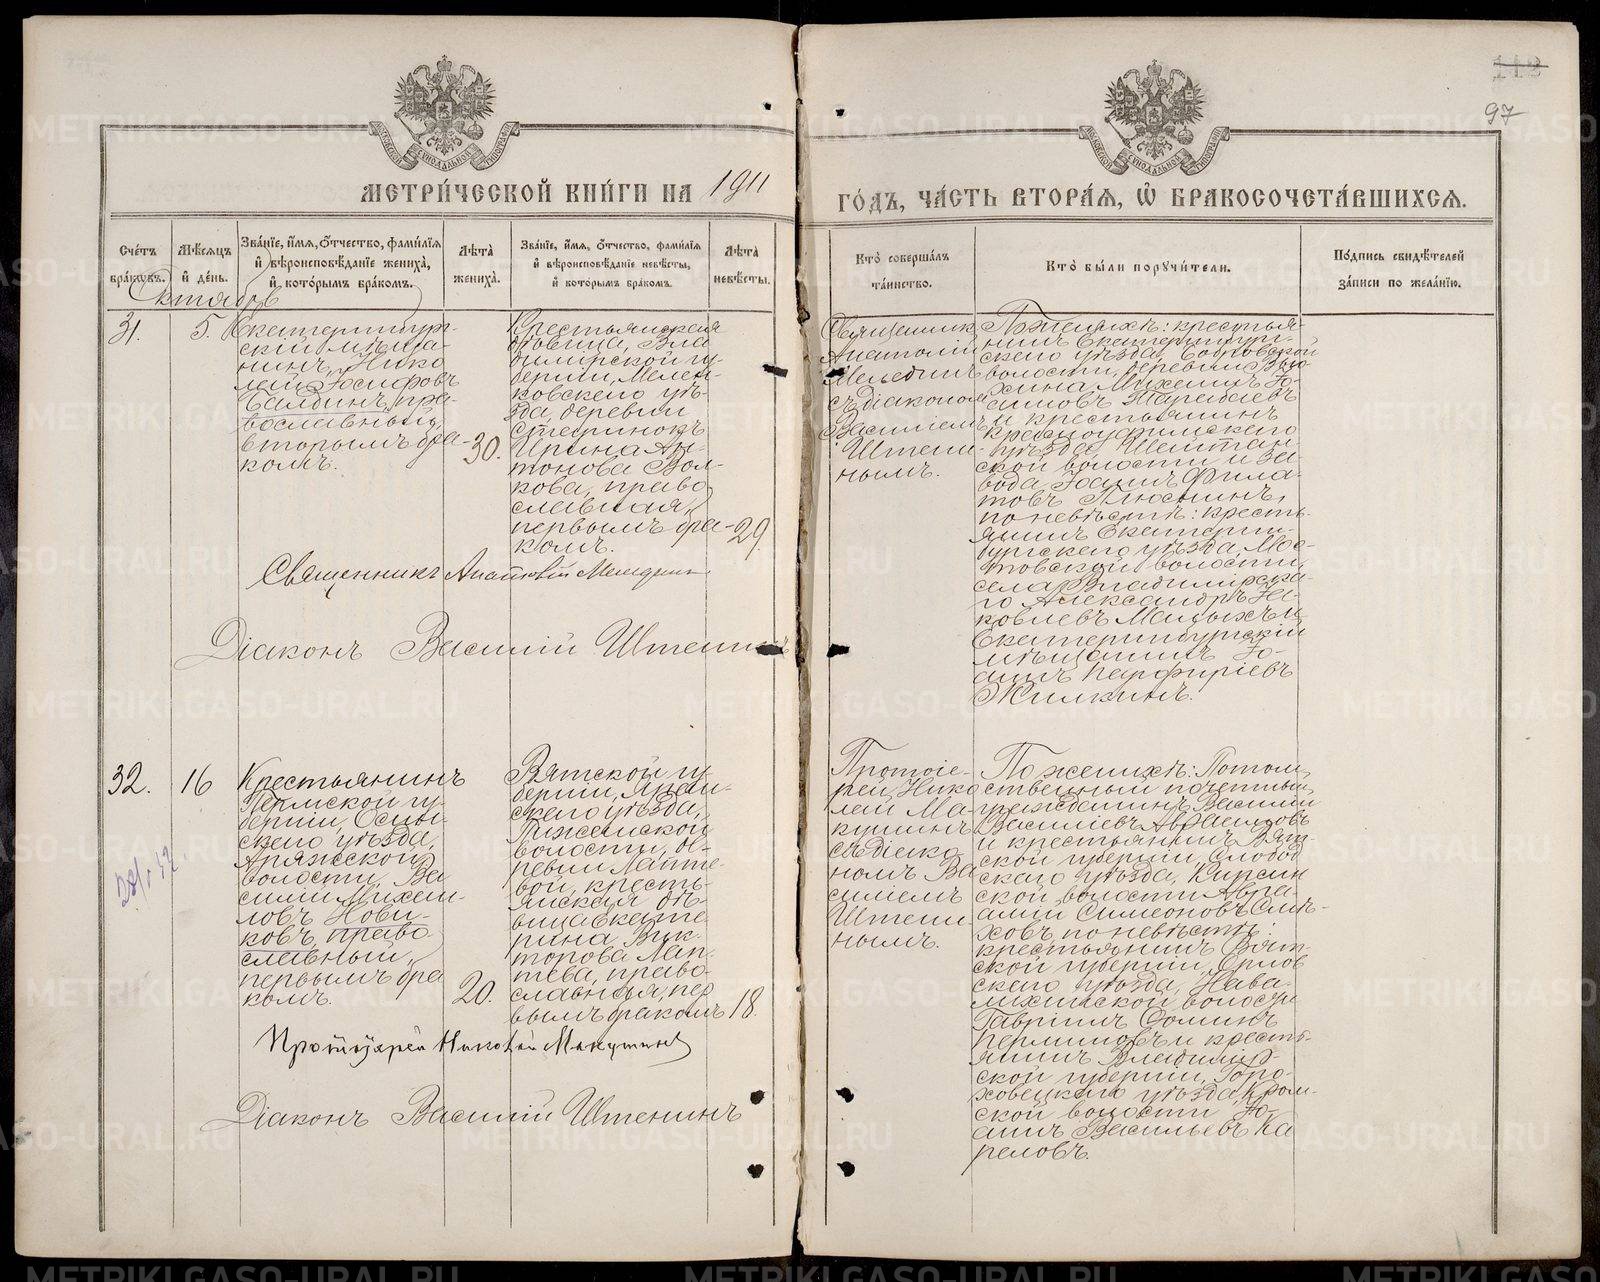 112
97
МЕТРИ́ЧЕСКОЙ КНИ́ГИ НА 1911
ГО́ДЪ, ЧА́СТЬ ВТОРА́Я, Ѽ БРАКОСОЧЕТА́ВШИХСЯ.
Счéтъ
брáкѡвъ.
Мѣ́сяцъ
и҆ дéнь.
Звáнїе, и҆́мя, ѻ҆́тчество, фамѝлїя
и҆ вѣроисповѣ́данїе женихà,
и҆ котóрымъ брáкомъ.
Лѣ́та
женихà.
Звáнїе, и҆́мя, ѻ҆́тчество, фамѝлїя
и҆ вѣроисповѣ́данїе невѣ́сты,
и҆ котóрымъ брáкомъ.
Лѣ́та
невѣ́сты.
Ктò совершáлъ
тáинство.
Ктò бы́ли порꙋчи́тели.
Пóдпись свидѣ́телей
зáписи по желáнїю.
Октябрь
31.
5.
Екатеринбург-
скій мѣща-
нинъ, Нико
лай Іосифовъ
Балдинъ, пра-
вославный,
вторымъ бра-
комъ.
30.
Крестьянская
дѣвица, Вла
димірской гу-
берніи, Мелен-
ковскаго уѣз-
да, деревни
Ирина Ан-
тонова Вол-
кова, право
славная,
первымъ бра-
комъ.
29.
Священникъ
Анатолій
Меледин
съ діакономъ
Василіемъ
Штени-
нымъ.
По женихѣ: крестья-
нинъ Екатеринбург-
скаго уѣзда,
волости, деревни
и крестьянинъ
Красноуфимскаго
уѣзда, Шайтан-
ской волости и за-
вода Іоанн Фила-
товъ Плюснинъ,
по невѣстѣ: кресть-
янинъ Екатерин-
бургскаго уѣзда, Мос-
товской волости,
села Владимірска-
го Александръ Іа-
ковлевъ Малыхъ и
Екатеринбургскій
мѣщанинъ Іо-
аннъ Парфиріевъ
Жилкинъ.
Священникъ Анатолій Меледин
Діаконъ Василій Штенинъ
32.
16
Крестьянинъ
Пермской гу-
берніи, Осин-
скаго уѣзда,
Аряжской
волости, Ва
силій Михаи-
ловъ Нови-
ковъ, право
славный,
первымъ бра
комъ.
20.
Вятской гу-
берніи, Яран-
скаго уѣзда,
Пижемской
волости, де-
ревни Лапте-
вой, кресть-
янская дѣ-
вица Екате
рина Вик-
торова Лап-
тева, право-
славная, пер
вымъ бракомъ
18.
Протоіе-
рей Нико
лай Ма-
кушинъ
съ діако
номъ Ва
силіемъ
Штени-
нымъ.
По женихѣ: Потом-
ственный почетный
гражданинъ Василій
Василіевъ
и крестьянинъ Вят-
ской губерніи, Слобод
скаго уѣзда,
ской волости Авра-
амій Симеоновъ
по невѣстѣ:
крестьянинъ Вят-
ской губерніи, Орлов
скаго уѣзда,
волости
Гавріилъ Ѳоминъ
Перминовъ и кресть-
янинъ Владимір-
ской губерніи, Горо-
ховецкаго уѣзда,
ской волости Іо-
аннъ Васильевъ Ка
реловъ.
Протоіерей Николай Макушинъ
Діаконъ Василій Штенинъ